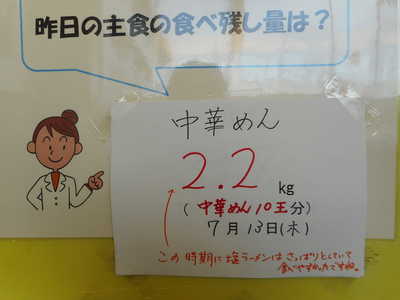 昨日の主食の食べ残し量は?
中華めん
2.2 kg
(中華めん10玉分)
7月13日(木)
この時期に塩ラーメンはさっぱりとしていて
食べやすかったですね。